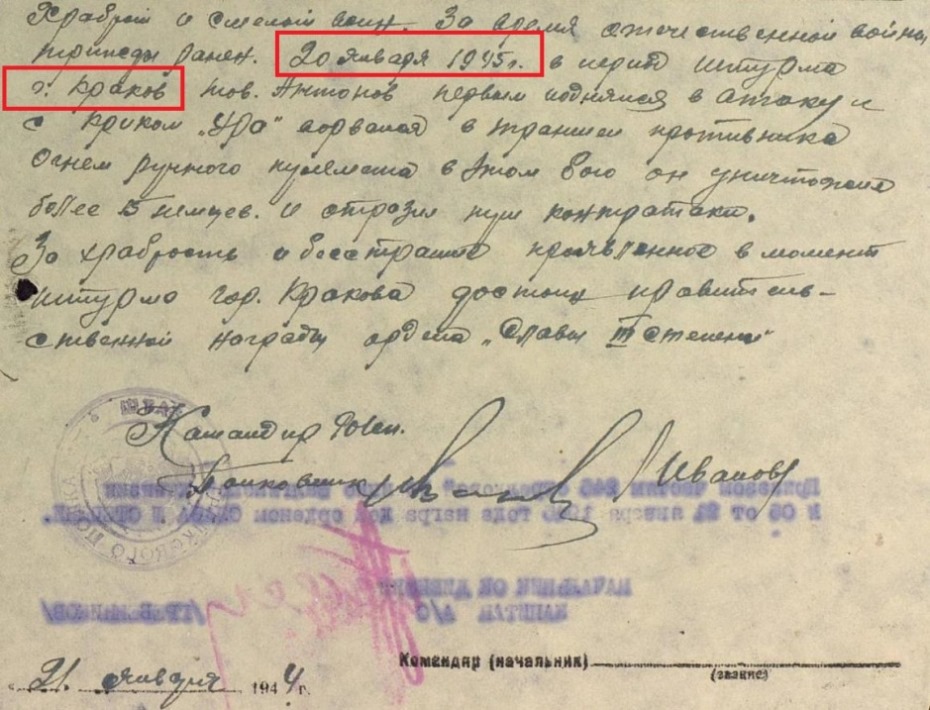 Храбрый и смелый воин. За время отечественной войны
трижды ранен. 20 января 1945г. в период штурма
г. Краков тов. Антонов первым поднялся в атаку и
с криком „Ура" ворвался в траншеи противника
Огнем ручного пулемета в этом бою он уничтожил
более 15 немцев. и отразил три контратаки.
За храбрость и бесстрашие проявленное в момент
штурма гор. Кракова достоин правитель-
ственной награды ордена „Славы III степени"
Командир
Полковник /Иванов/
Приказом частям
от 21 января 1945 года награжден орденом Славы
НАЧАЛЬНИК
КАПИТАН А/С
Командир (начальник)
(звание)
„21" января 1944 г.